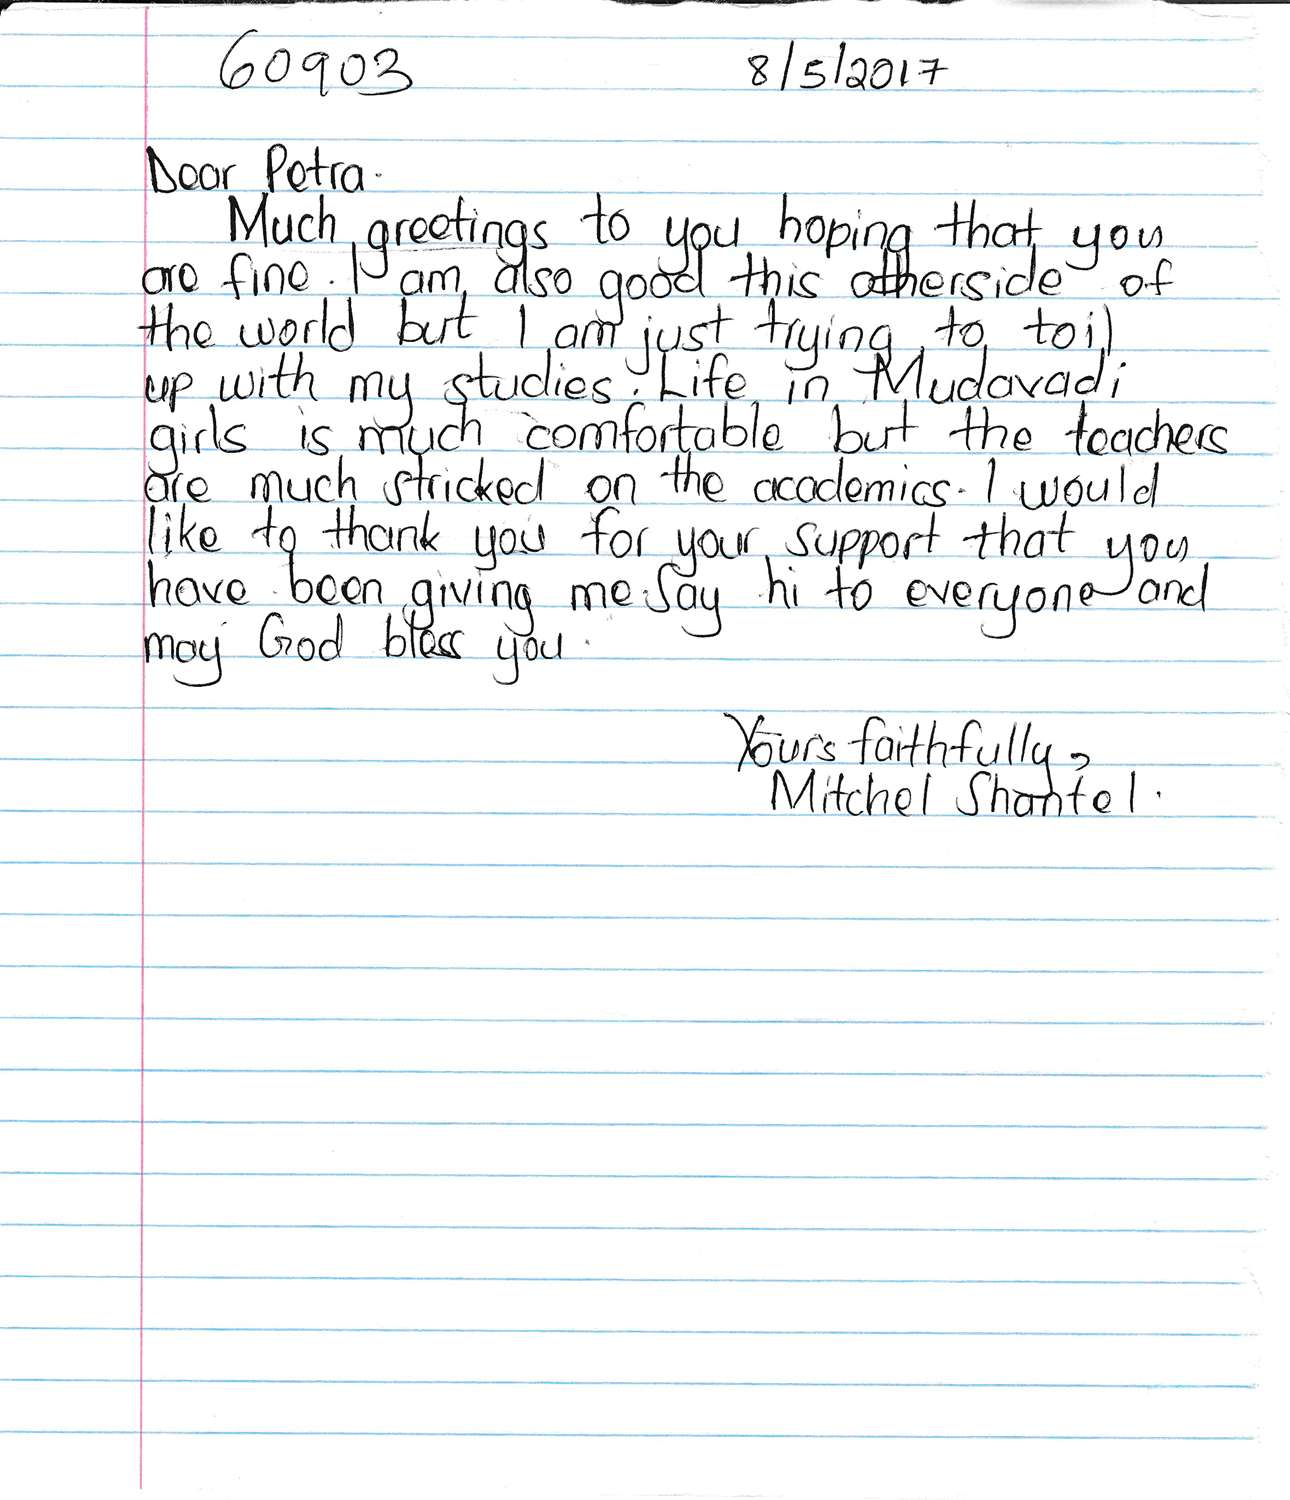 60903 8/5/2017
Dear Petra.
Much greetings to you hoping that you
are fine. I am also good this otherside of
the world but I am just trying to toil
up with my studies. Life in Mudavadi
girls is much comfortable but the teachers
are much stricked on the academics. I would
like to thank you for your support that you
have been giving me Say hi to everyone and
may God bless you.
Yours faithfully,
Mitchel Shantel.